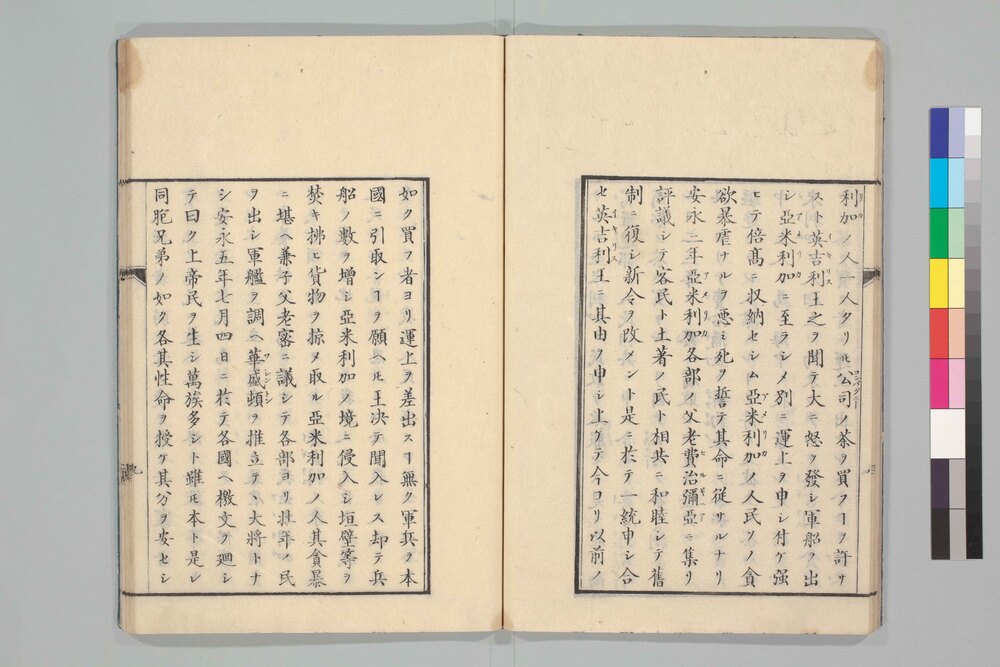 利加ノ人一人タリ𪜈公司ノ茶ヲ買フヿヲ許サ
ス卜英吉利王之ヲ聞テ大ニ怒ヲ發シ軍船ヲ出
シ亞米利加ニ至ラシメ別ニ運上ヲ申シ付ケ强
ヒテ倍髙ニ収納セシム亞米利加ノ人民ソノ貪
欲暴虐ナルヲ悪ミ死ヲ誓テ其命ニ從サルナリ
安永三年亞米利加各部ノ父老費治彌亞ニ集リ
評議シテ客民ト土著ノ民ト相共ニ和睦シテ舊
制ニ復シ新令ヲ改メント是ニ於テ一統申シ合
セ英吉利王ニ其由ヲ申シ上ケテ今コリ以前ノ
如ク買フ者ヨリ運上ヲ差出スヿ無ク軍兵ヲ本
國ニ引取ンヿヲ願ヘ𪜈王決テ聞入レス却テ兵
船ノ數ヲ增シ亞米利加ノ境ニ侵入シ垣壁等ヲ
焚キ拂ヒ貨物ヲ掠メ取ル亞米利加ノ人其貪暴
ニ堪ヘ兼子父老密ニ議シテ各部ヨリ壮年ノ民
ヲ出シ軍艦ヲ調ヘ華盛頓ヲ推立テヽ大將トナ
シ安永五年七月四日ニ於テ各國ヘ檄文ヲ廻シ
テ曰ク上帝民ヲ生シ萬族多シト雖𪜈本ト是レ
同胞兄弟ノ如ク各其性命ヲ授ケ其分ヲ安セシ